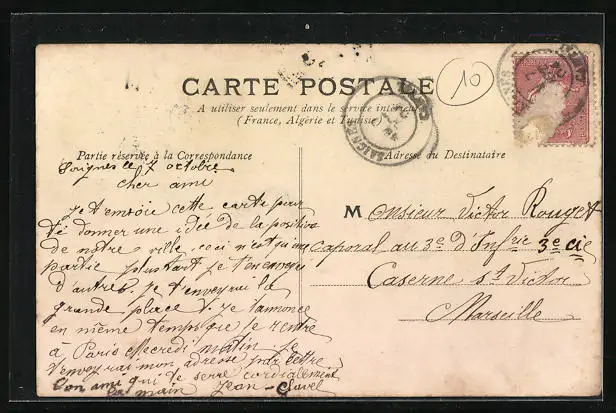 CARTE POSTALE
A utiliser seulement dans le service intérieur
(France, Algérie et Tunisie)
10
Partie réservée à la Correspondance
Adresse du Destinataire
le 7 octobre
cher ami
je t'envoie cette carte pour
te donner une idée de la position
de notre ville ceci n'est qu'une
partie plus tart je t'en enverrai
d'autres. je t'enverai la
grande place je t'annonce
en même temps que je rentre
à Paris Mecredi matin je
t'enverrai mon adresse par lettre
Ton ami qui te serre cordialement
la main Jean
Monsieur Victor Rouget
caporal au 3e d'Infrie 3e cie
Caserne St Victor
Marseille